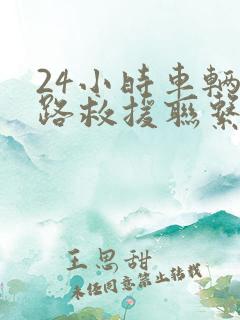 24小時車輛
路救援聯繫
王思甜
未经同意禁止转载